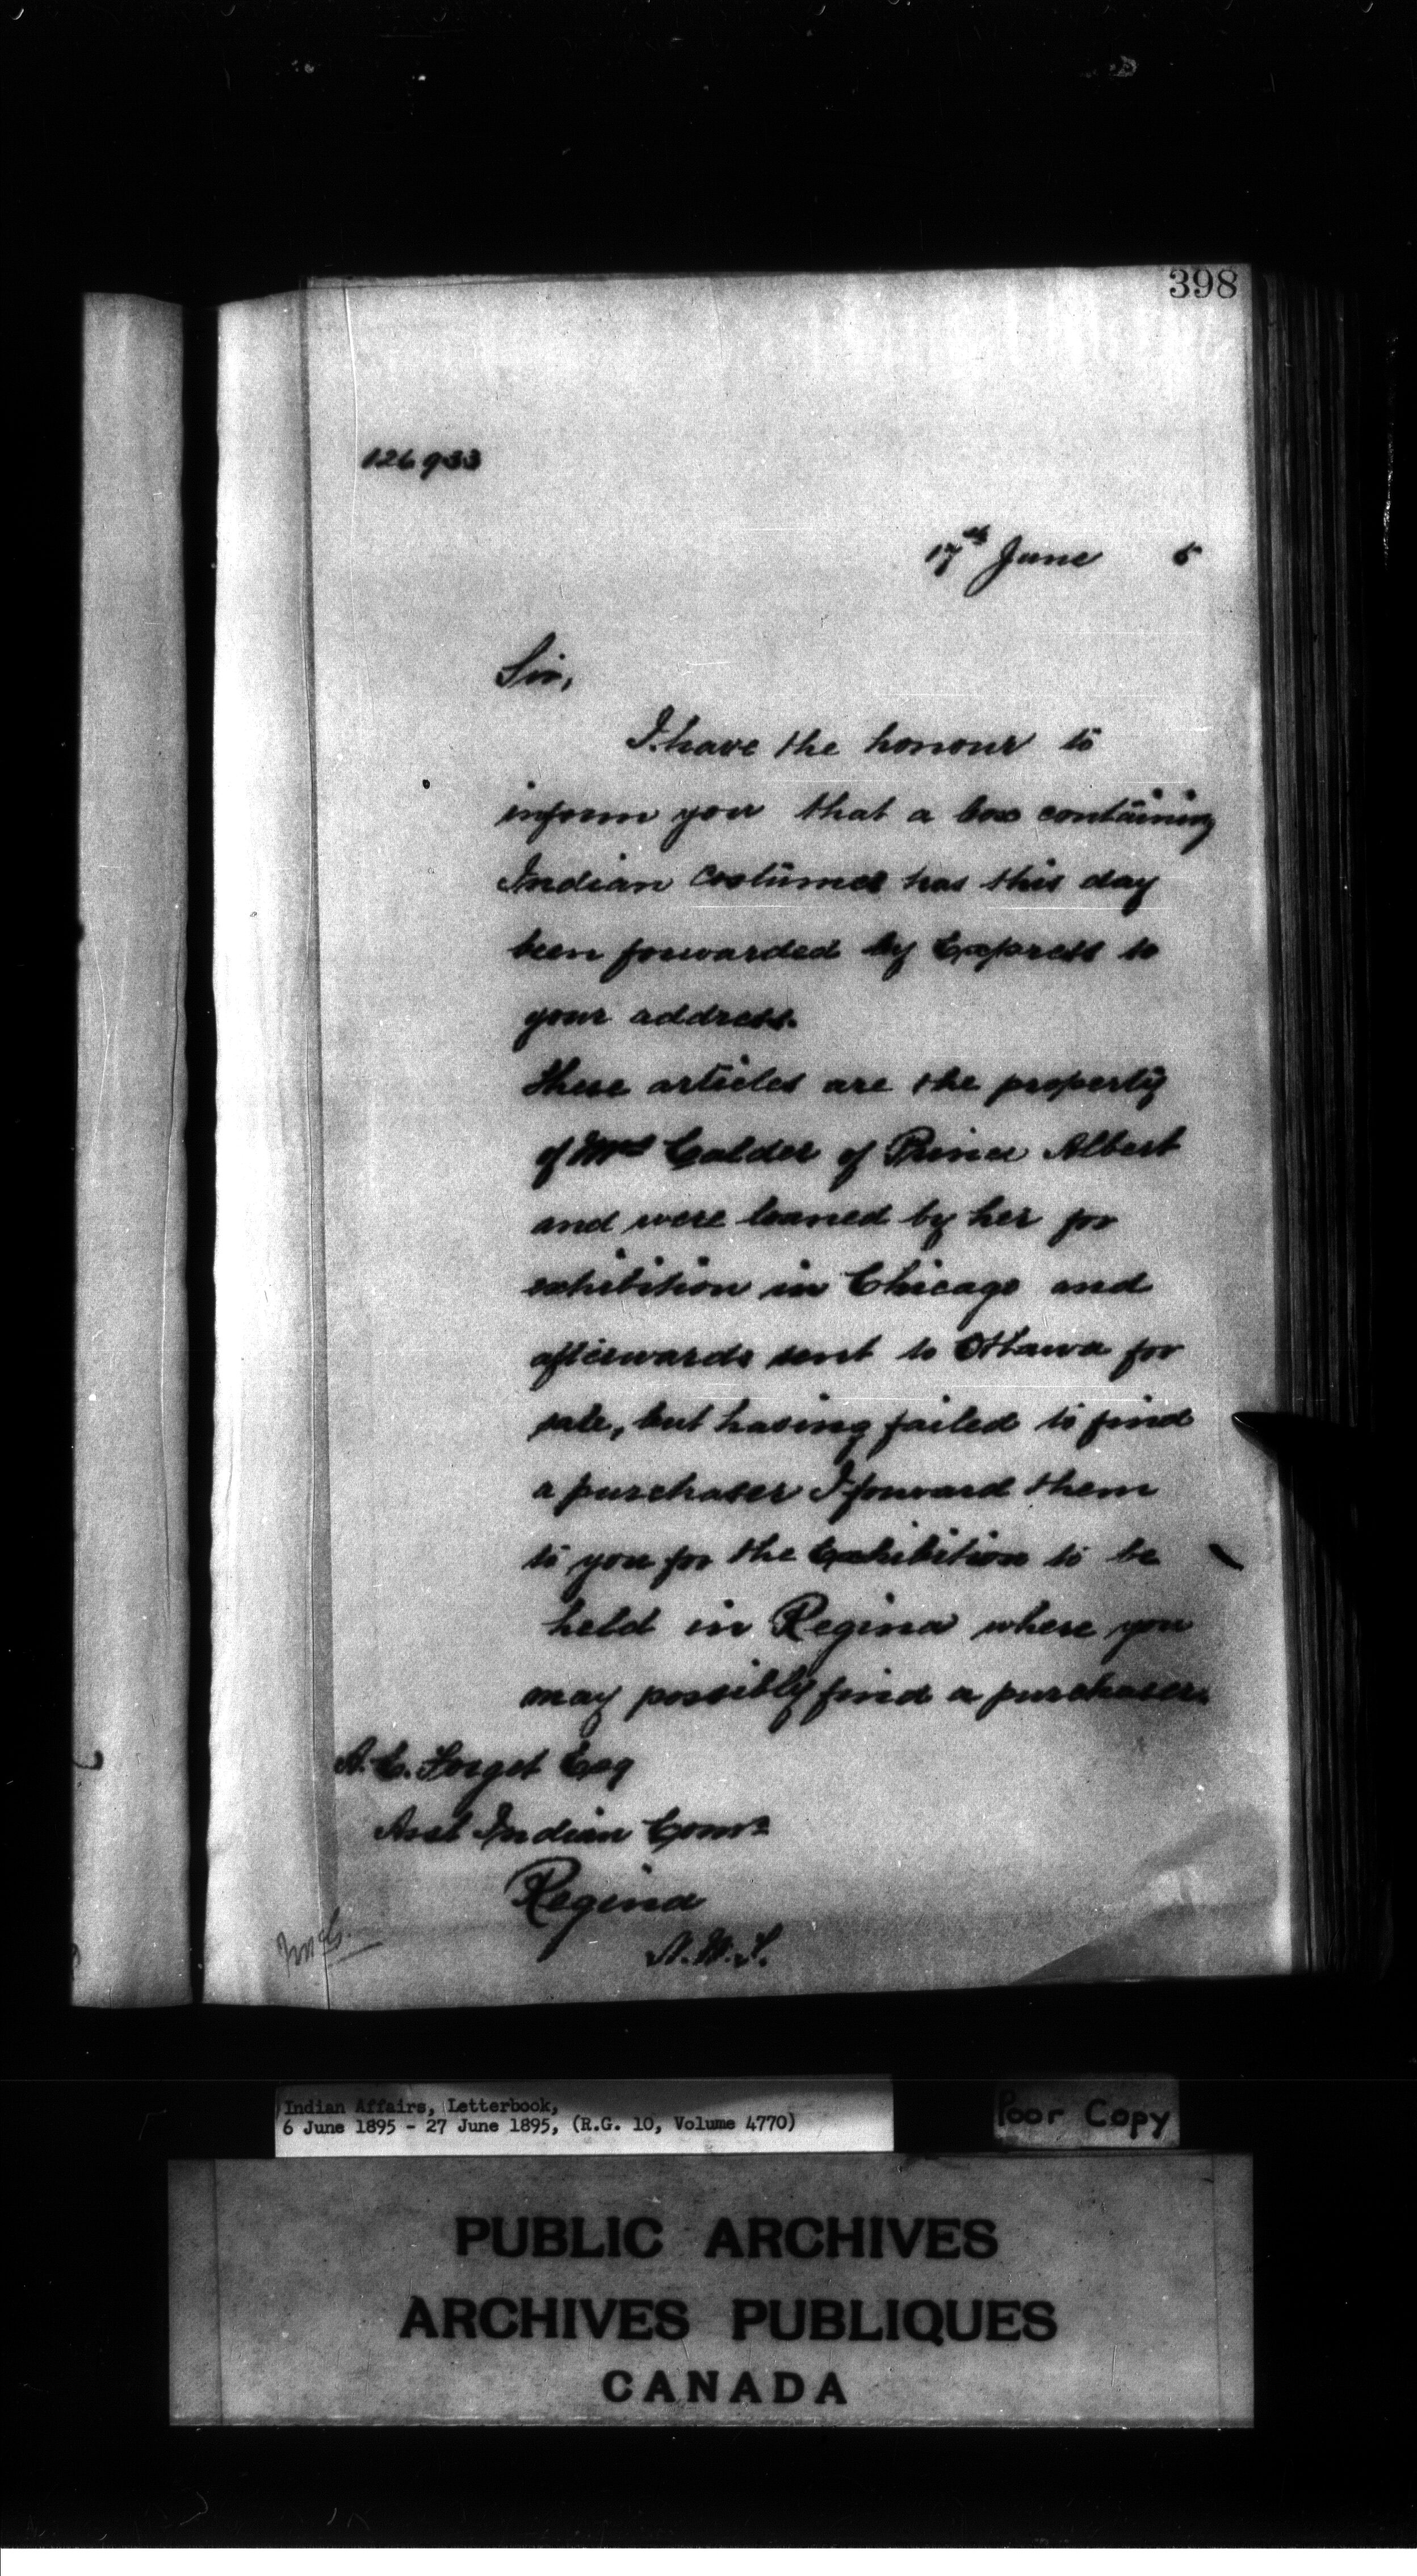 398
126933
17th June 5
Sir,
I have the honour to
inform you that a box containing
Indian Costumes has this day
been forwarded by Express to
your address.
These articles are the property
of Mrs Calder of Prince Albert
and were loaned by her for
exhibition in Chicago and
afterwards sent to Ottawa for
sale, but having failed to find
a purchaser I forward them
to you for the Exhibition to be
held in Regina where you
may possibly find a purchaser.
A. E. Forget Esq
Asst Indian Comr
Regina
N.W.T.
Indian Affairs, Letterbook,
6 June 1895 - 27 June 1895, (R.G. 10, Volume 4770)
Poor Copy
PUBLIC ARCHIVES
ARCHIVES PUBLIQUES
CANADA